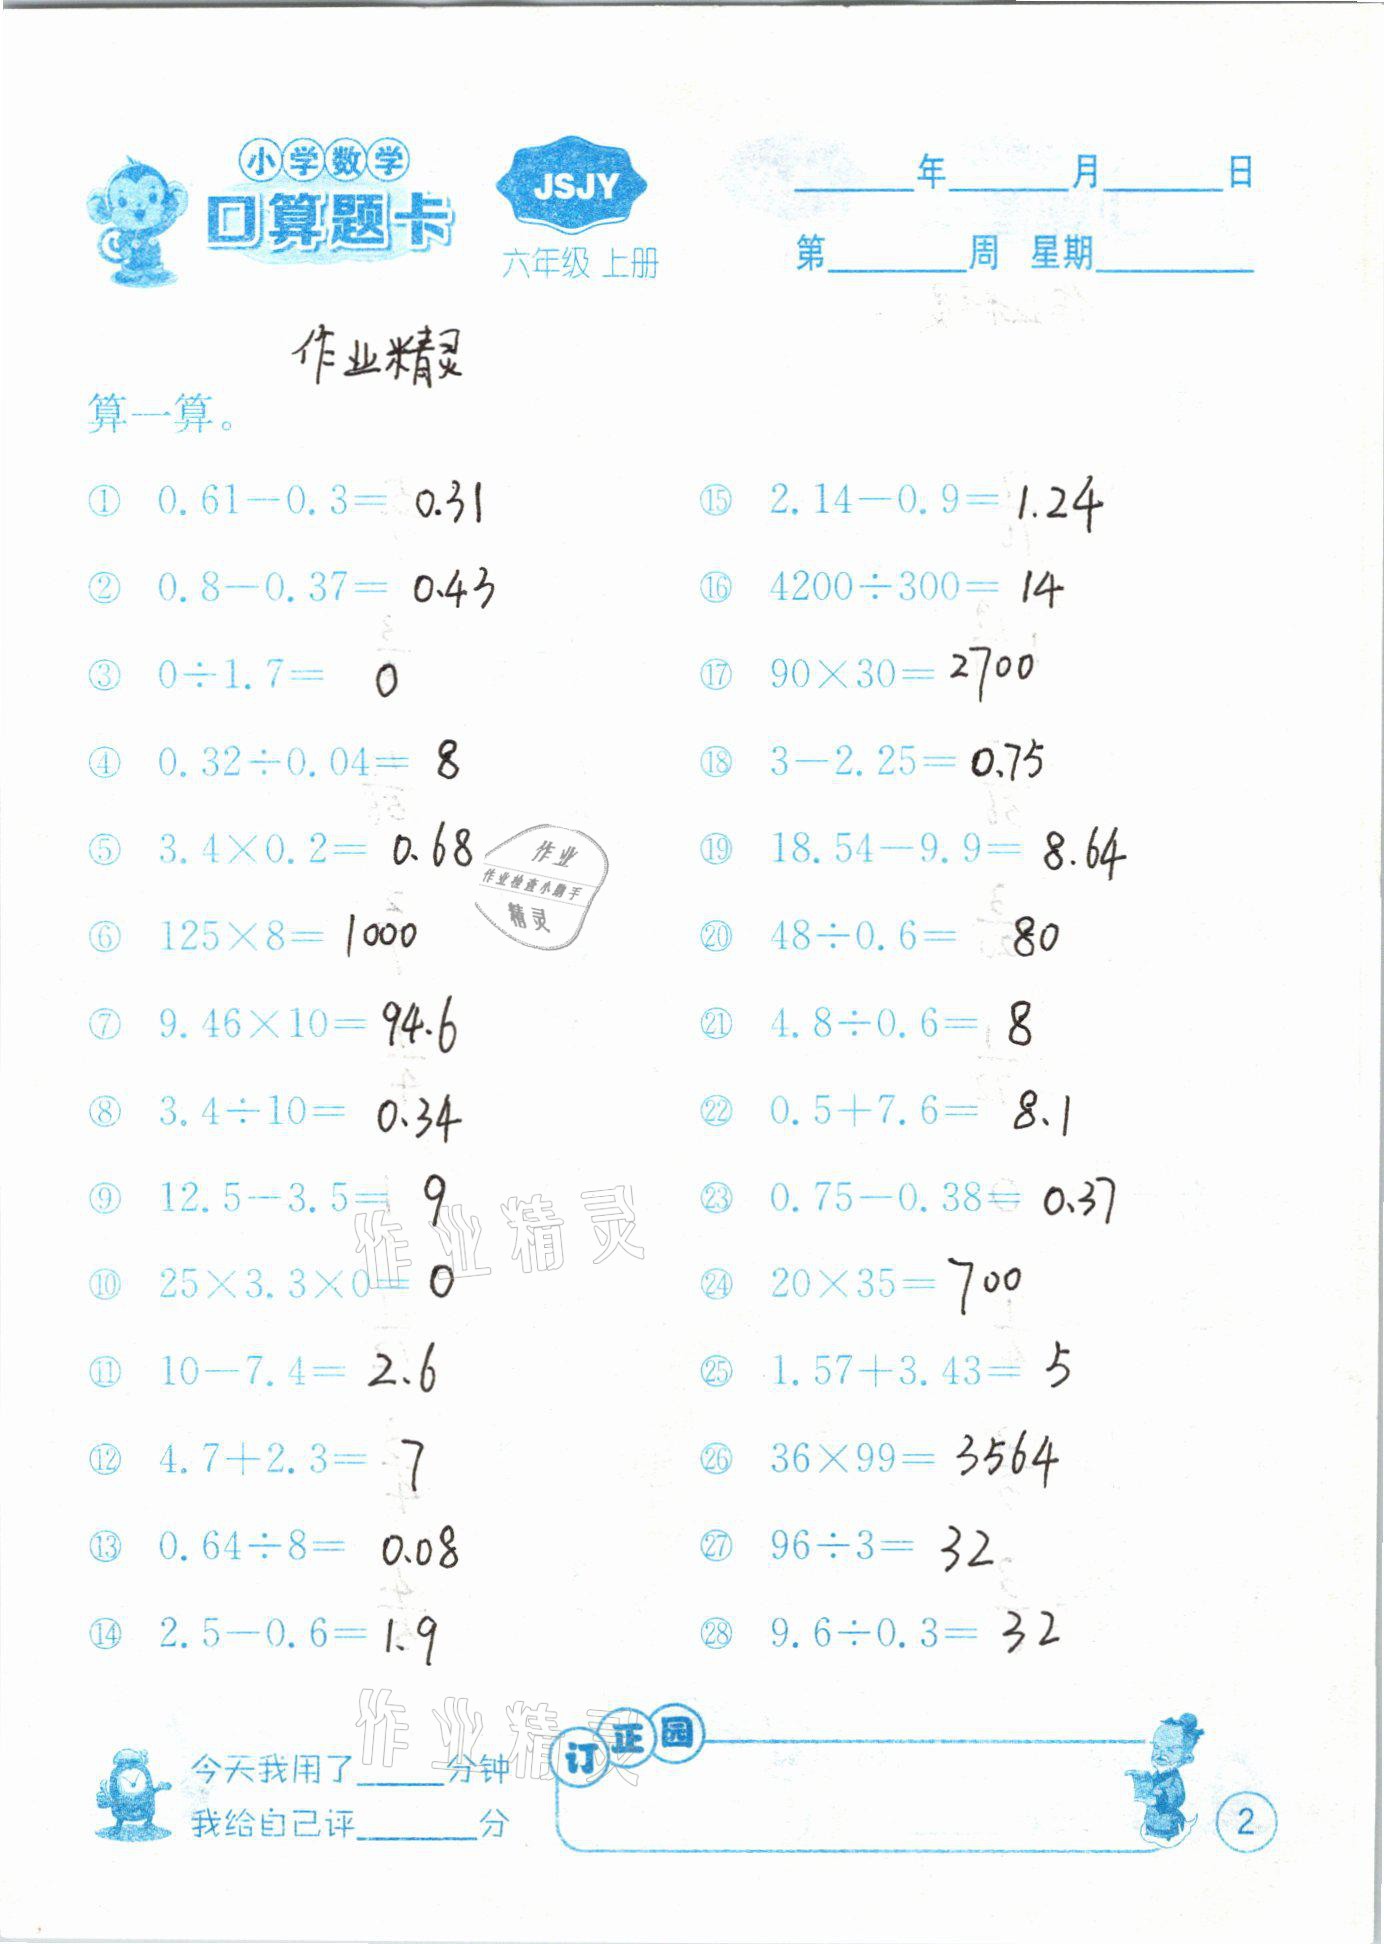 小学数学
口算题卡
JSJY
六年级 上册
____年____月____日
第____周 星期____
作业精灵
算一算。
① 0.61－0.3＝ 0.31
② 0.8－0.37＝ 0.43
③ 0÷1.7＝ 0
④ 0.32÷0.04＝ 8
⑤ 3.4×0.2＝ 0.68
⑥ 125×8＝ 1000
⑦ 9.46×10＝ 94.6
⑧ 3.4÷10＝ 0.34
⑨ 12.5－3.5＝ 9
⑩ 25×3.3×0＝ 0
⑪ 10－7.4＝ 2.6
⑫ 4.7＋2.3＝ 7
⑬ 0.64÷8＝ 0.08
⑭ 2.5－0.6＝ 1.9
⑮ 2.14－0.9＝ 1.24
⑯ 4200÷300＝ 14
⑰ 90×30＝ 2700
⑱ 3－2.25＝ 0.75
⑲ 18.54－9.9＝ 8.64
⑳ 48÷0.6＝ 80
㉑ 4.8÷0.6＝ 8
㉒ 0.5＋7.6＝ 8.1
㉓ 0.75－0.38＝ 0.37
㉔ 20×35＝ 700
㉕ 1.57＋3.43＝ 5
㉖ 36×99＝ 3564
㉗ 96÷3＝ 32
㉘ 9.6÷0.3＝ 32
作业
作业检查小助手
精灵
作业精灵
作业精灵
今天我用了____分钟
我给自己评____分
订正园
2